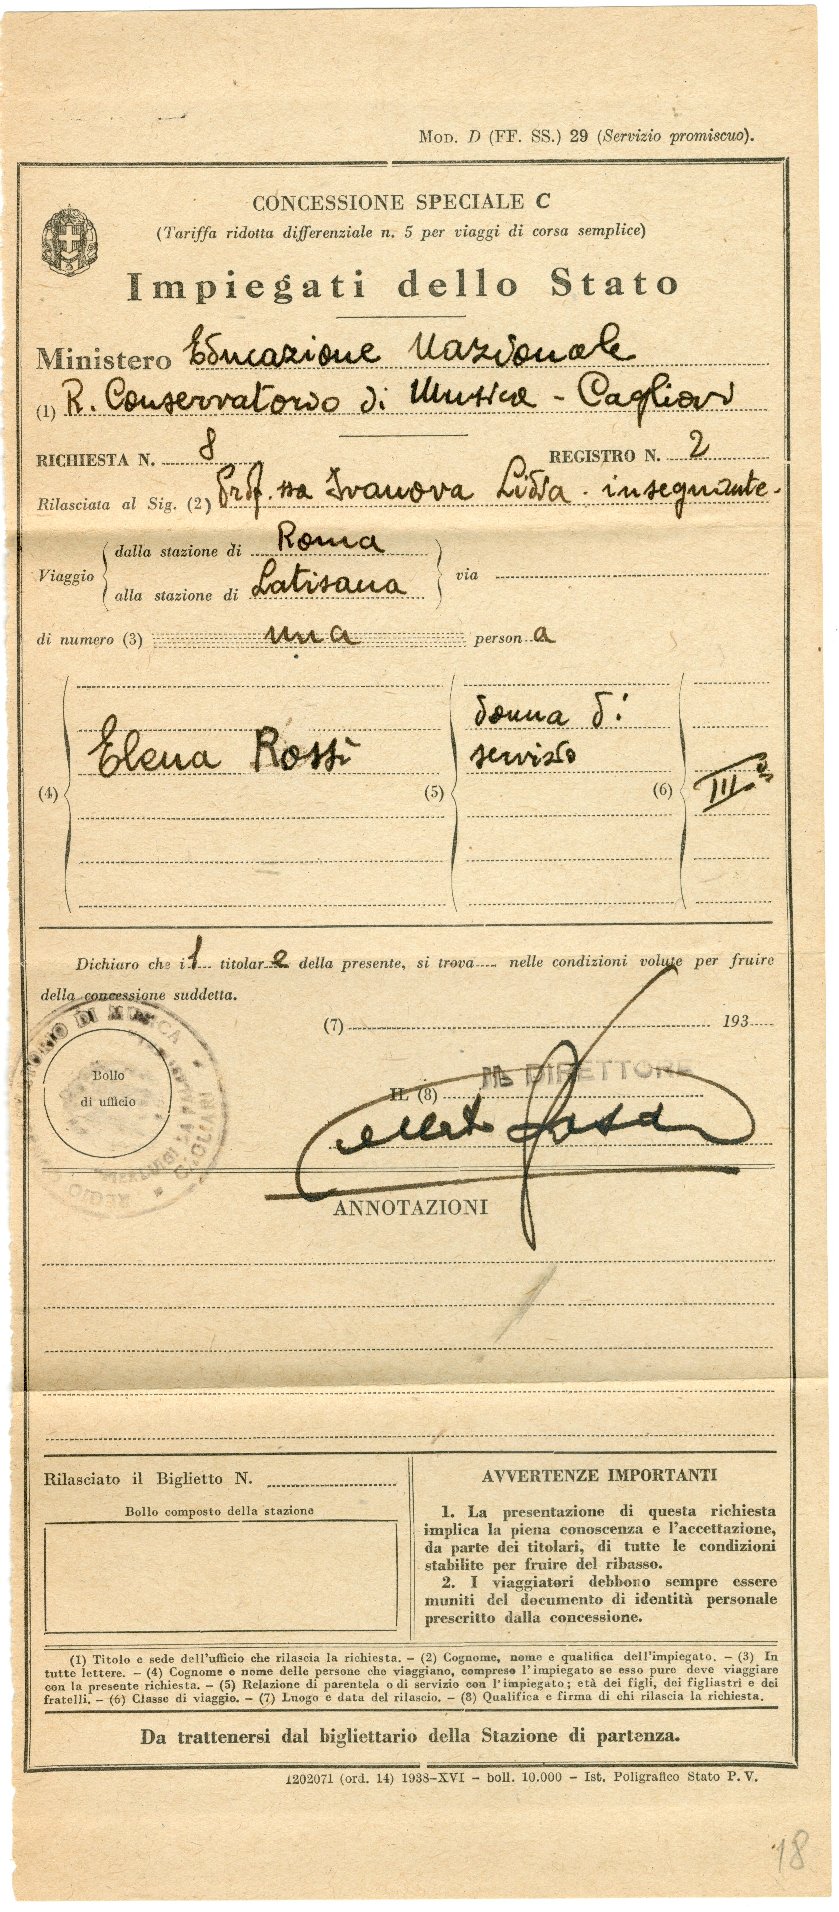 MOD. D (FF. SS.) 29 (Servizio promiscuo).
CONCESSIONE SPECIALE C
(Tariffa ridotta differenziale n. 5 per viaggi di corsa semplice)
Impiegati dello Stato
Ministero Educazione Nazionale
(1) R. Conservatorio di Musica - Cagliari
RICHIESTA N. 8 REGISTRO N. 2
Rilasciata al Sig. (2) Prof.ssa Ivanova Lidia - insegnante -
dalla stazione di Roma
Viaggio via
alla stazione di Latisana
di numero (3) una persona
donna di
Elena Rossi servizio
(4) (5) (6) III.a
Dichiaro che il titolare della presente, si trova nelle condizioni volute per fruire
della concessione suddetta.
(7) 193
Bollo
di ufficio
IL (8) IL DIRETTORE
REGIO CONSERVATORIO DI MUSICA * CAGLIARI *
"PIERLUIGI DA PALESTRINA"
ANNOTAZIONI
Rilasciato il Biglietto N.
Bollo composto della stazione
AVVERTENZE IMPORTANTI
1. La presentazione di questa richiesta
implica la piena conoscenza e l'accettazione,
da parte dei titolari, di tutte le condizioni
stabilite per fruire del ribasso.
2. I viaggiatori debbono sempre essere
muniti del documento di identità personale
prescritto dalla concessione.
(1) Titolo e sede dell'ufficio che rilascia la richiesta. – (2) Cognome, nome e qualifica dell'impiegato. – (3) In
tutte lettere. – (4) Cognome e nome delle persone che viaggiano, compreso l'impiegato se esso pure deve viaggiare
con la presente richiesta. – (5) Relazione di parentela o di servizio con l'impiegato; età dei figli, dei figliastri e dei
fratelli. – (6) Classe di viaggio. – (7) Luogo e data del rilascio. – (8) Qualifica e firma di chi rilascia la richiesta.
Da trattenersi dal bigliettario della Stazione di partenza.
1202071 (ord. 14) 1938-XVI – boll. 10.000 – Ist. Poligrafico Stato P. V.
18